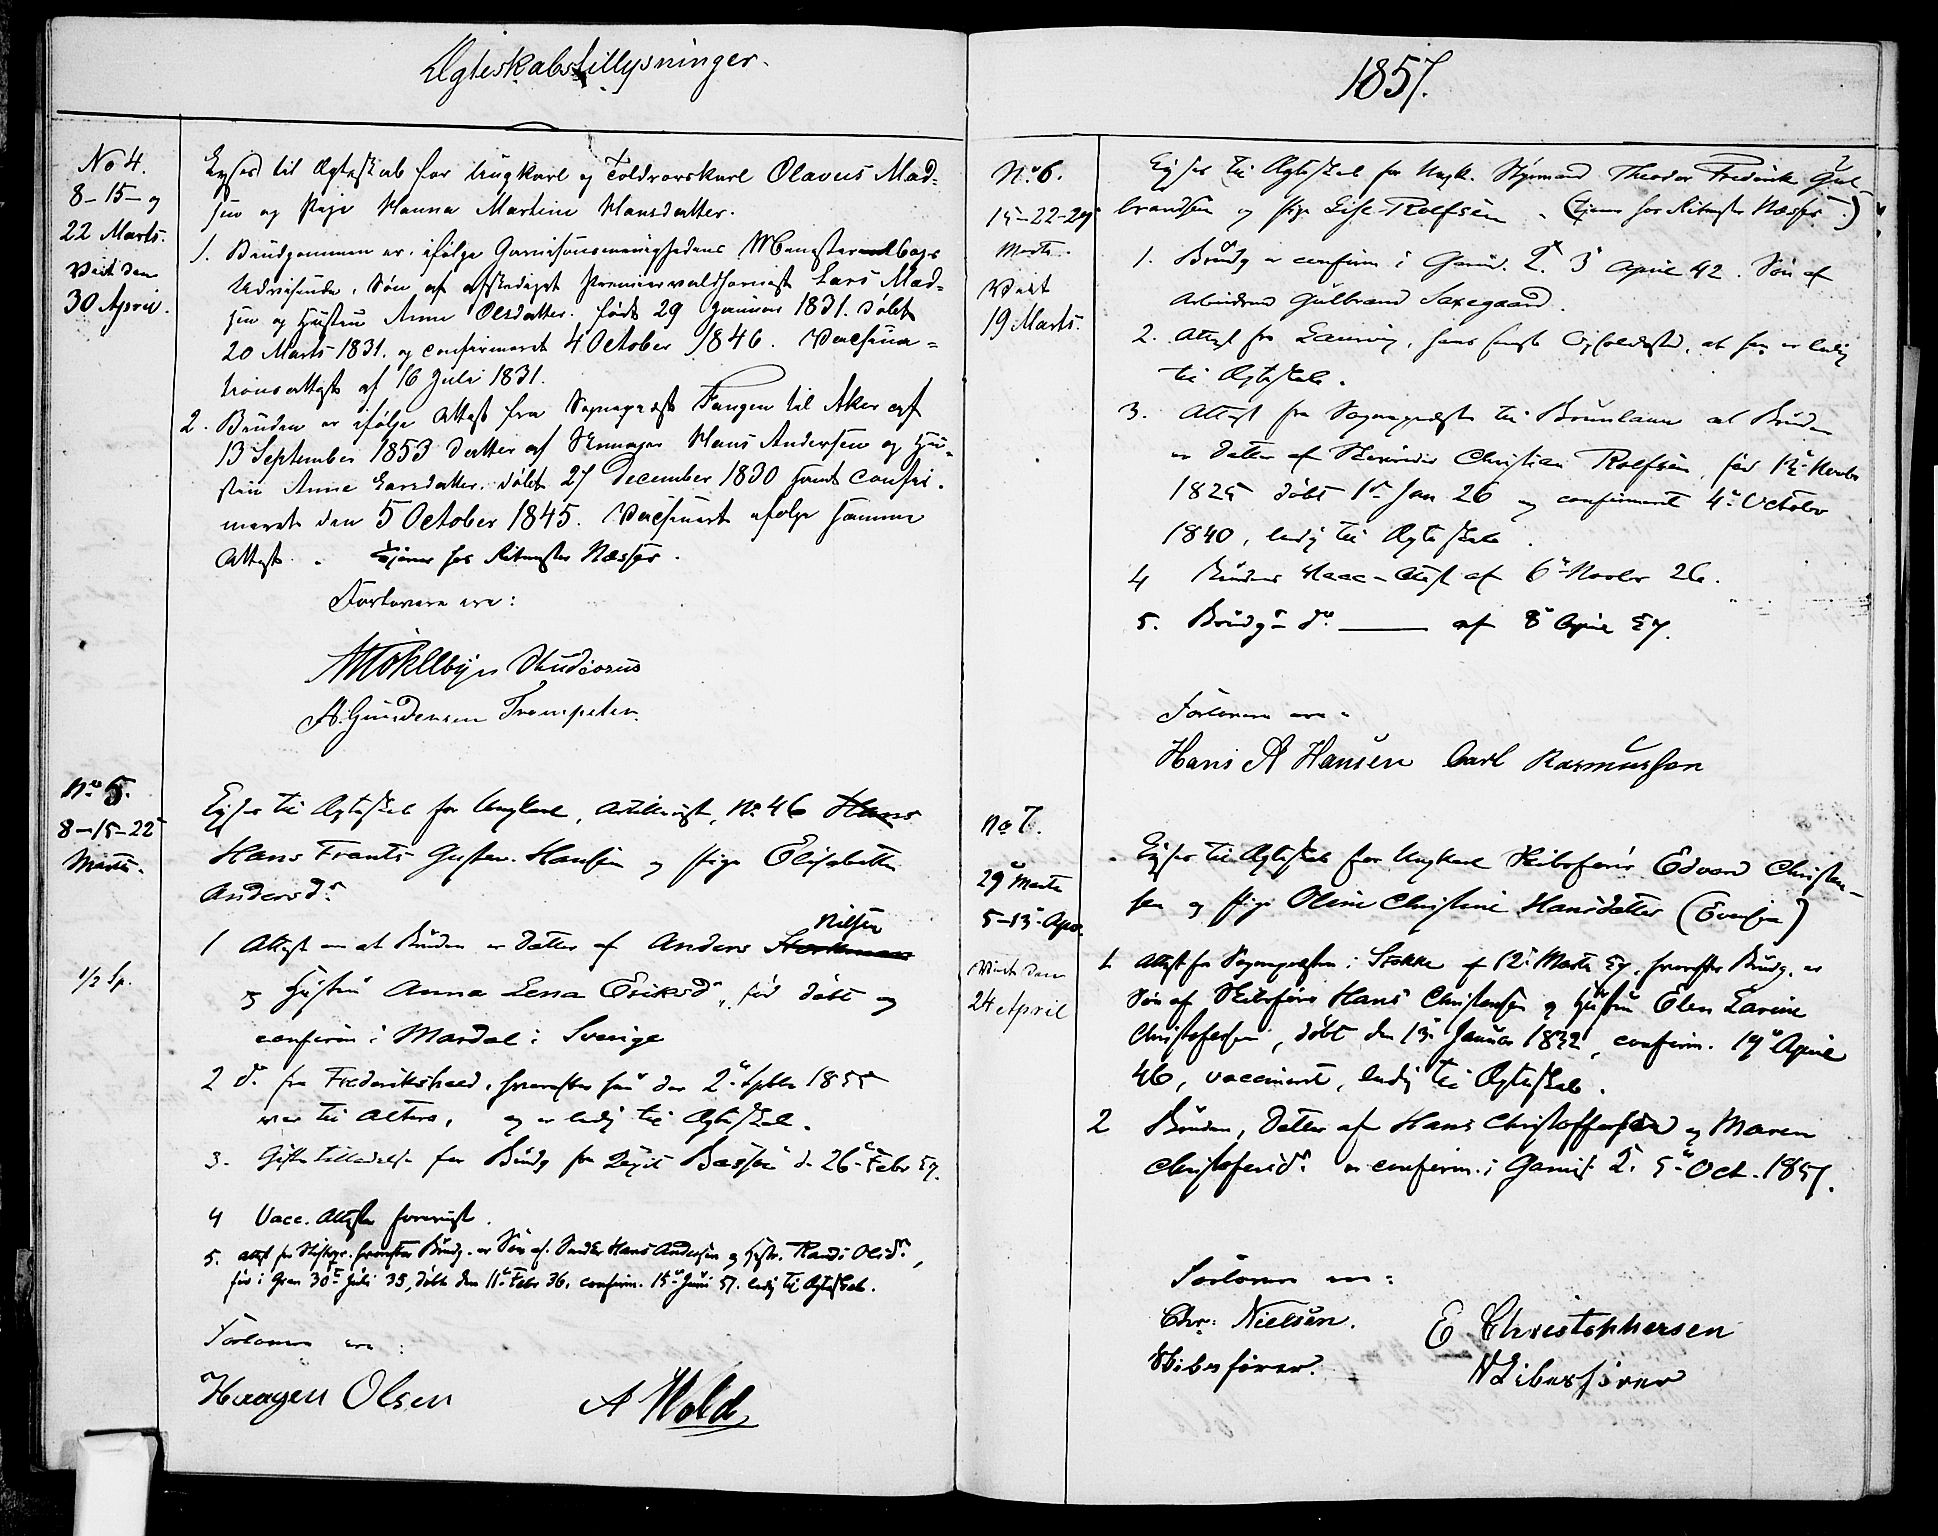 Ægteskabstillysninger.
No 4.
8-15- og
22 Marts.
Viet den
30 April.
Lyses til Ægteskab for Ungkarl og Toldrorskarl Olavus Mad-
sen og Pige Hanna Martine Hansdatter.
1. Brudgommen er, ifølge Garnisonsmenighedens Ministerialbogs
Udvisende, Søn af afskediget Premiervaldhornist Lars Mad-
sen og Hustru Anne Olsdatter. født 29 Januar 1831. døbt
20 Marts 1831. og confirmeret 4 October 1846. Vaccina-
tionsattest af 16 Juli 1831.
2. Bruden er ifølge Attest fra Sognepræst Fangen til Aker af
13 September 1853 Datter af Hans Andersen og Hu-
stru Anne Larsdatter. døbt 27 December 1830 samt confir-
meret den 5 October 1845. Vaccineret ifølge samme
Attest. Tjener hos Ritmester Næsser.
Forlovere ere:
Studiosus
A. Gundersen Trompeter.
No 5.
8-15-22
Marts.
1/2 Sp.
Lyses til Ægteskab for Ungkarl, Artillerist, No 46 Hans
Hans Frants Gustav Hansen og Pige Elisabeth
Andersdr
1 Attest om at Bruden er Datter af Anders Nilsen
og Hustru Anna Lena Eriksdr, fød døbt og
confirm i Mardal i Sverige
2 do fra Frederikshald, hvorefter hun den 2 Septbr 1855
var til Alters, og er ledig til Ægteskab.
3. Giftetilladelse for Brudg fra d. 26 Febr 57.
4 Vacc. Attester foreviist.
5. Attest fra hvorefter Brudg. er Søn af Hans Andersen og Hustr. Randi Olsdr,
fød i Gran 30te Juli 35, døbt den 11 Febr 36. confirm. 15 Juni 51. ledig til Ægteskab.
Forlovere ere:
Haagen Olsen A Hold
1857.
No 6.
15-22-29
Marts.
Viet
19 Marts.
Lyses til Ægteskab for Ungk. Styrmand Theodor Frederik Gul-
brandsen og Pige Lise Rolfsen. (Tjener hos Ritmester Næsser.)
1. Brudg er confirm i Garnis. d. 3 April 42. Søn af
Arbeidsmd Gulbrand Saxegaard.
2. Attest fra Laurvig, hans sidste Opholdssted, at han er ledig
til Ægteskab.
3. Attest fra Sognepræsten til Brunlaun at Bruden
er Datter af Christian Rolfsen, fød 12 Novbr
1825 døbt 1ste Jan 26 og confirmeret 4 October
1840, ledig til Ægteskab.
4 Brudens Vacc-Attest af 6 Novbr 26.
5. Brudg do — af 8 April 57.
Forlovere ere:
Hans A Hansen Carl Rasmussen
No 7.
29 Marts
5-13 Apr.
Viet den
24 April
Lyses til Ægteskab for Ungkarl Skibsfører Edvard Christen-
sen og Pige Oline Christine Hansdatter (Evensen)
1. Attest fra Sognepræsten i Stokke af 12 Marts 57, hvorefter Brudg. er
Søn af Skibsfører Hans Christensen og Hustru Elen Larine
Christofersen, døbt den 13 Januar 1832, confirm. 19 April
46, vaccineret, ledig til Ægteskab.
2 Bruden, Datter af Hans Christoffersen og Maren
Christofersdr er confirm. i Garnis. d. 5 Oct. 1851.
Forlovere ere:
Chr: Nielsen.
Skibsfører.
E Christophersen
Skibsfører